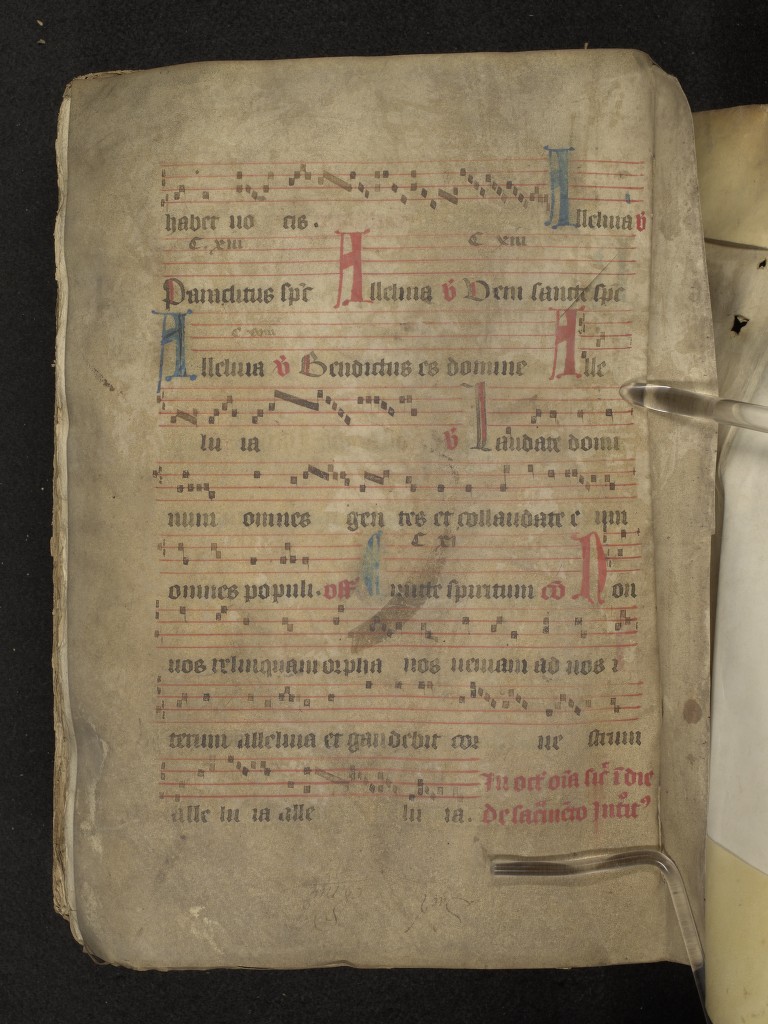 habet uo cis. Alleluia v̄
C. xiii C xiii
Paraclitus sp̄c Alleluia v̄ Veni sancte sp̄c
C xviii
Alleluia v̄ Benedictus es domine Alle
lu ia v̄ Laudate domi
num omnes gen tes et collaudate e um
C xi
omnes populi. off Emitte spiritum cō Non
uos relinquam orpha nos ueniam ad uos i
terum alleluia et gaudebit cor ue strum
alle lu ia alle lu ia. In oct̄ oīa sic̄ ī die
De sac̄